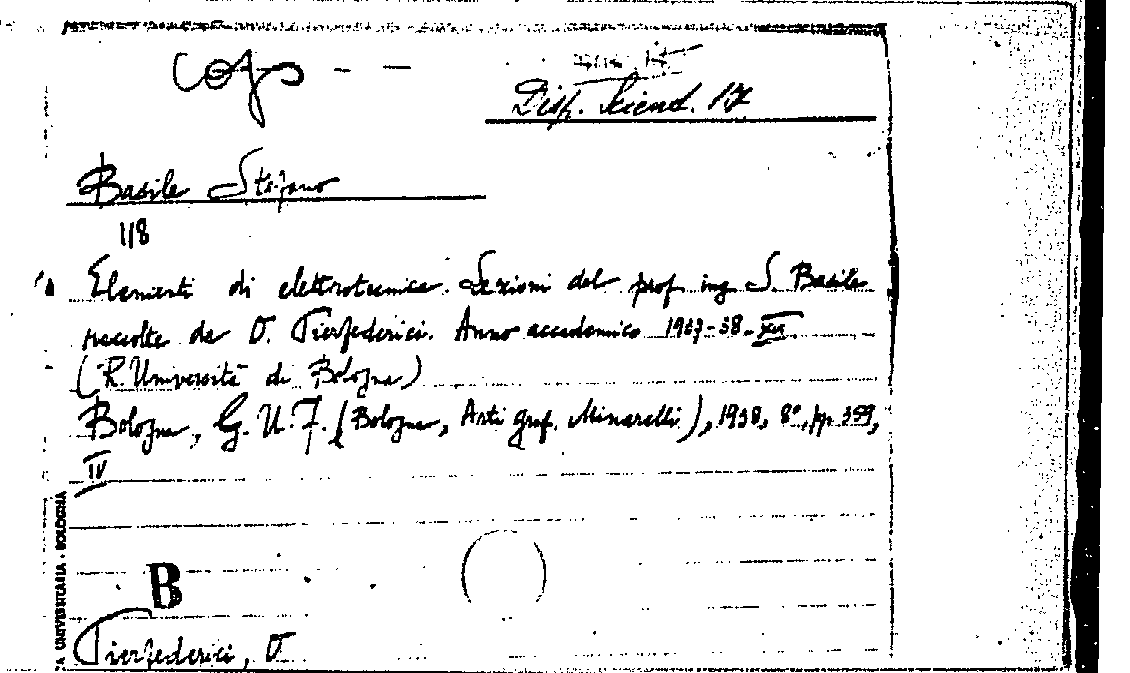 Disp. Sciend. 17
Basile Stefano
118
Elementi di elettrotecnica. Lezioni del prof. ing. S. Basile
raccolte da O. Pierfederici. Anno accademico 1937-38-XVI.
(R. Università di Bologna)
Bologna, G. U. F. (Bologna, Arti graf. Minarelli), 1938, 8°, pp. 359,
IV
B
Pierfederici, O.
UNIVERSITARIA - BOLOGNA